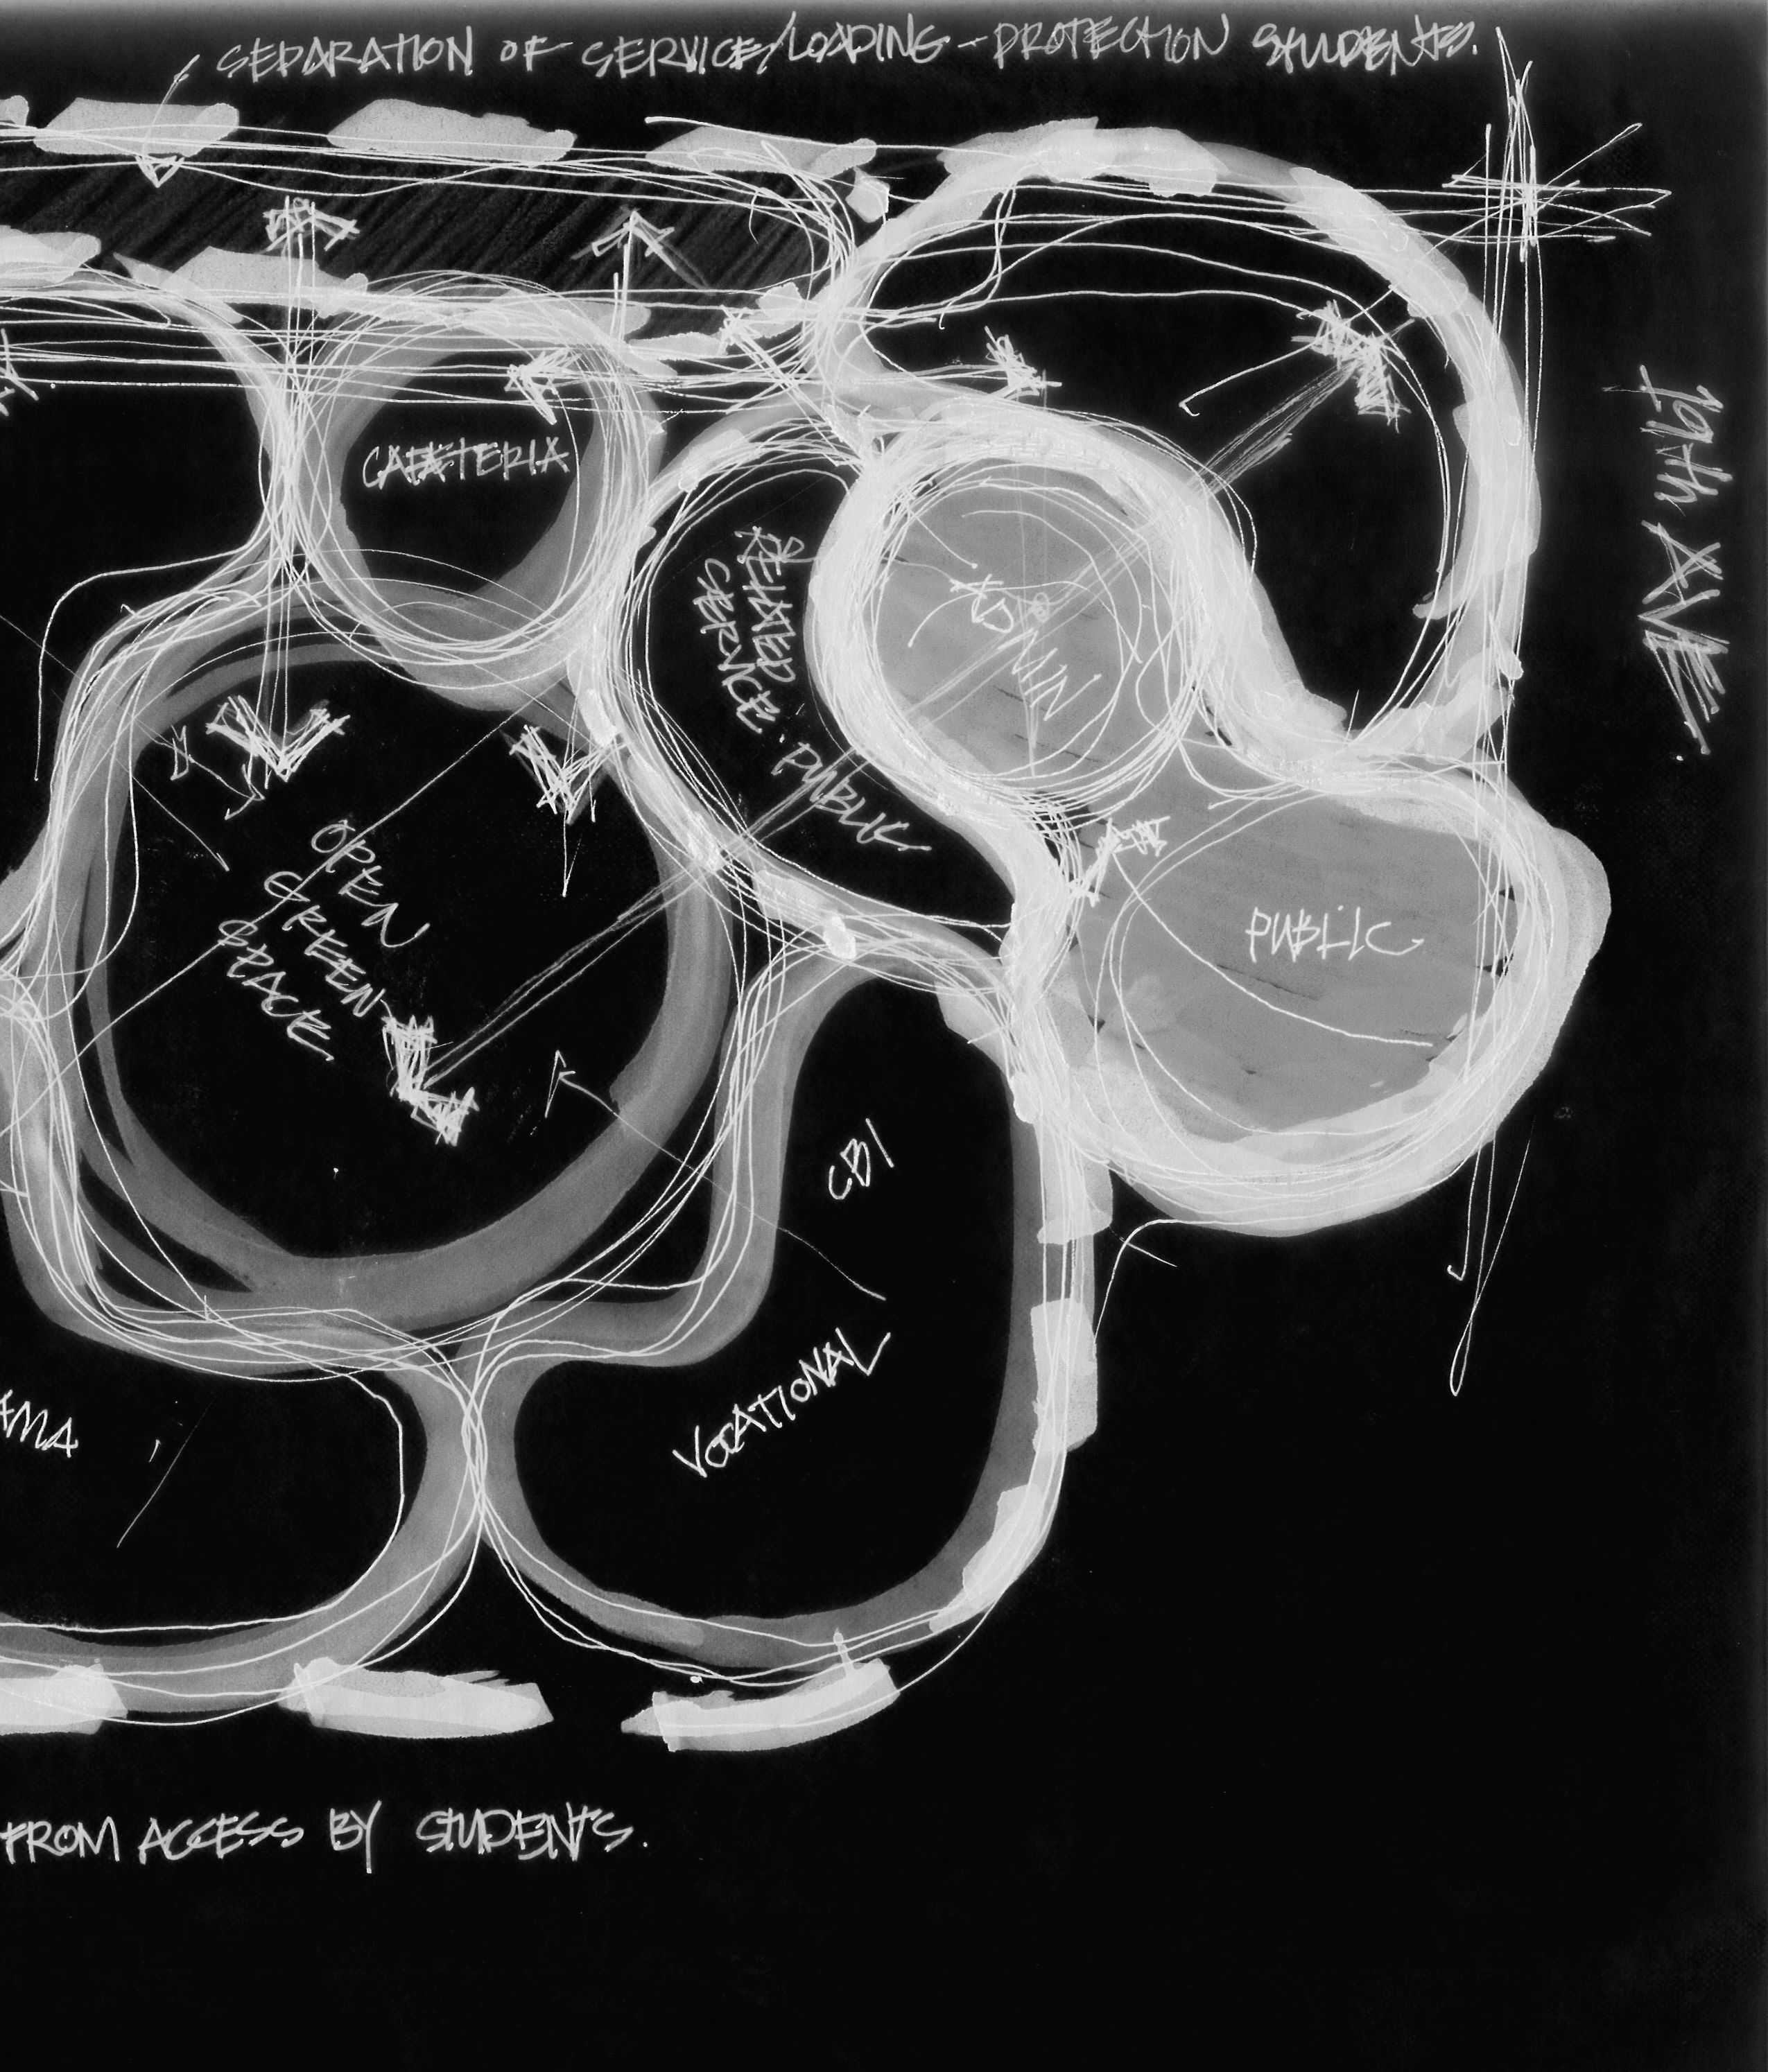 SEPARATION OF SERVICE/LOADING - PROTECTION STUDENTS.
19th AVE.
CAFETERIA
RELATED
SERVICE.
PUBLIC
ADMIN
OPEN
GREEN
SPACE
PUBLIC
CBI
VOCATIONAL
FROM ACCESS BY STUDENTS.